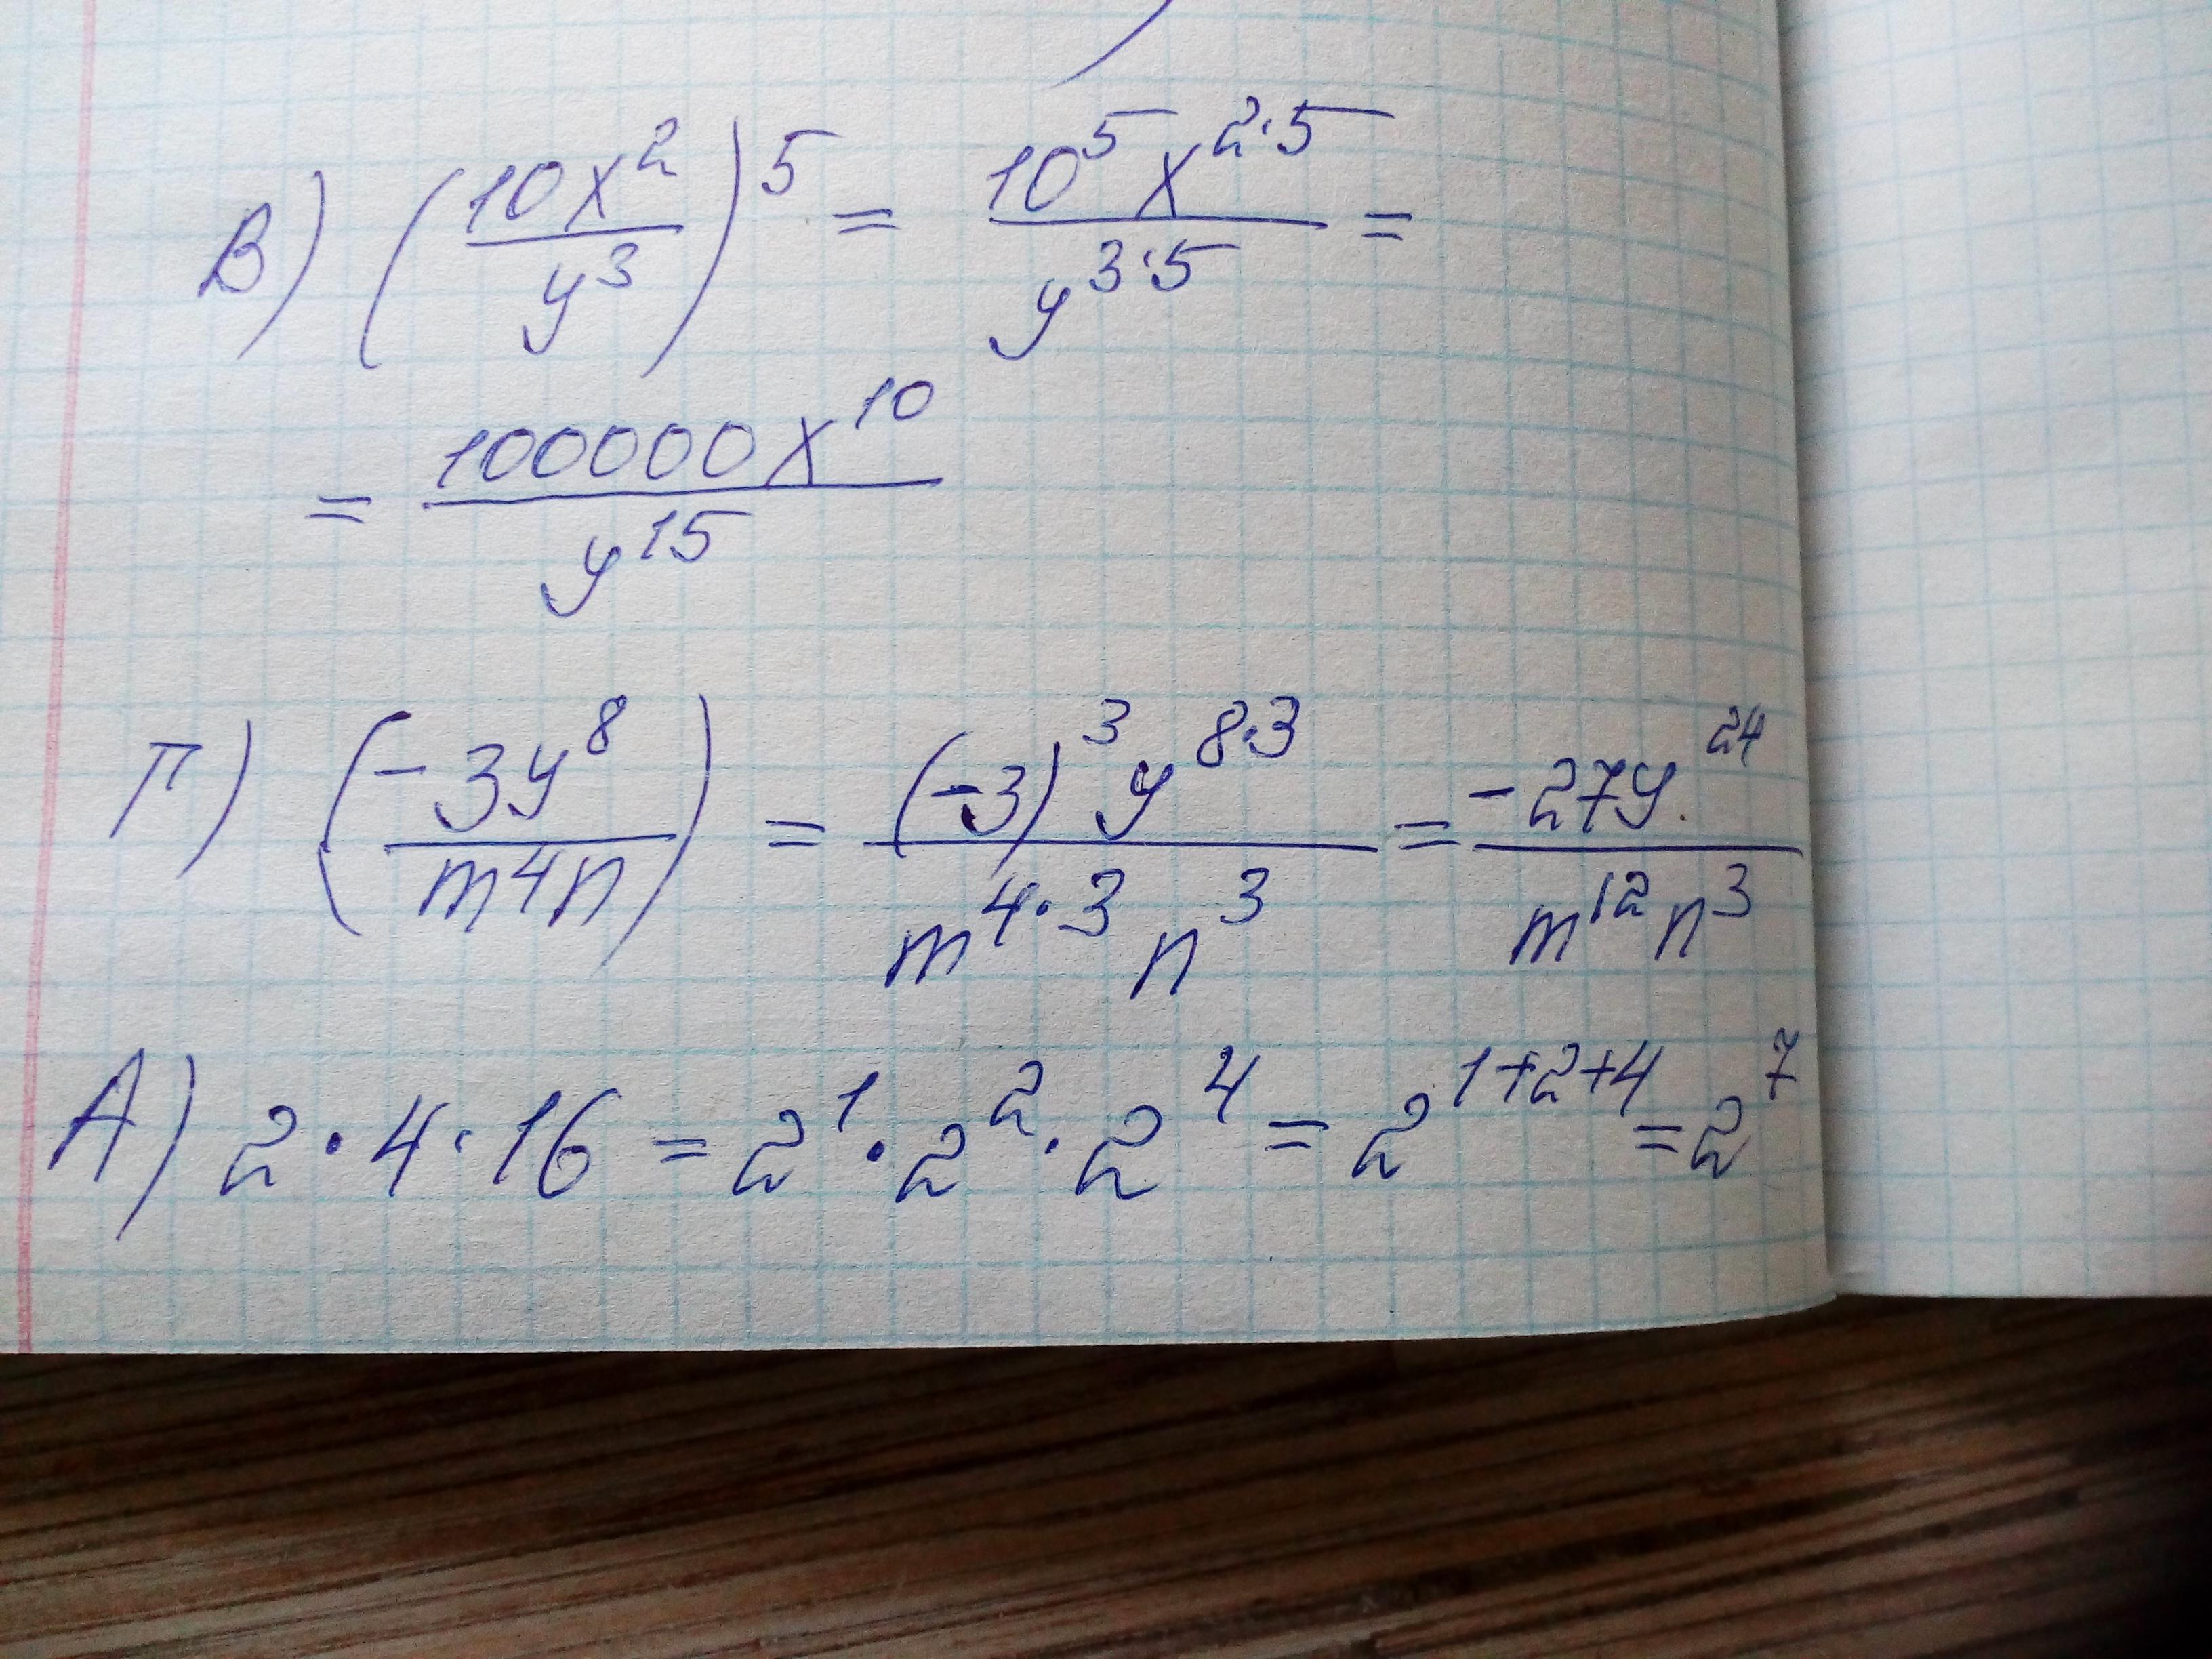 В) (10x²/y³)⁵ = 10⁵x²·⁵/y³·⁵ =
= 100000x¹⁰/y¹⁵
Г) (-3y⁸/m⁴n) = (-3)³y⁸·³/m⁴·³n³ = -27y²⁴/m¹²n³
А) 2·4·16 = 2¹·2²·2⁴ = 2¹⁺²⁺⁴ = 2⁷